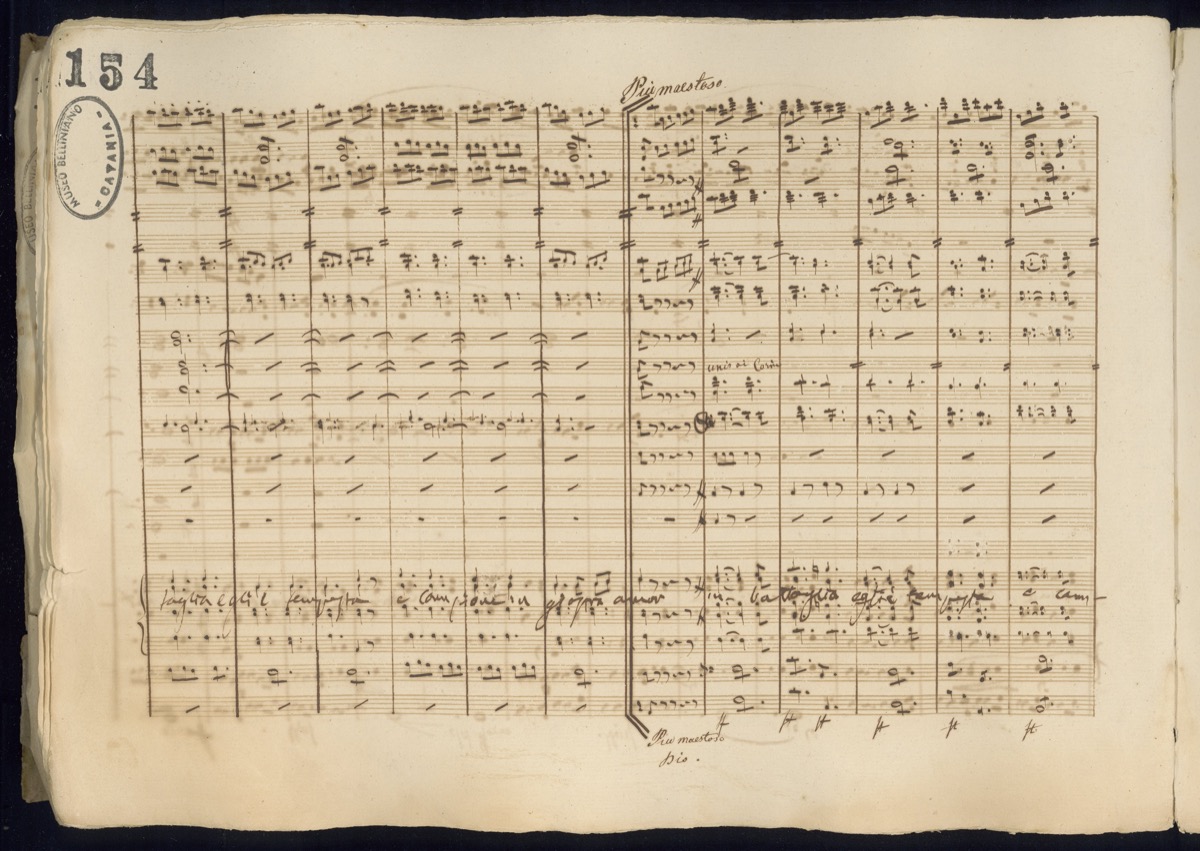 154
MUSEO BELLINIANO
= CATANIA =
Più maestoso
unis ai Corni
taglia egli è tempesta e campione in giostra amor in battaglia egli è tempesta e cam-
ff ff ff ff ff ff
Più maestoso